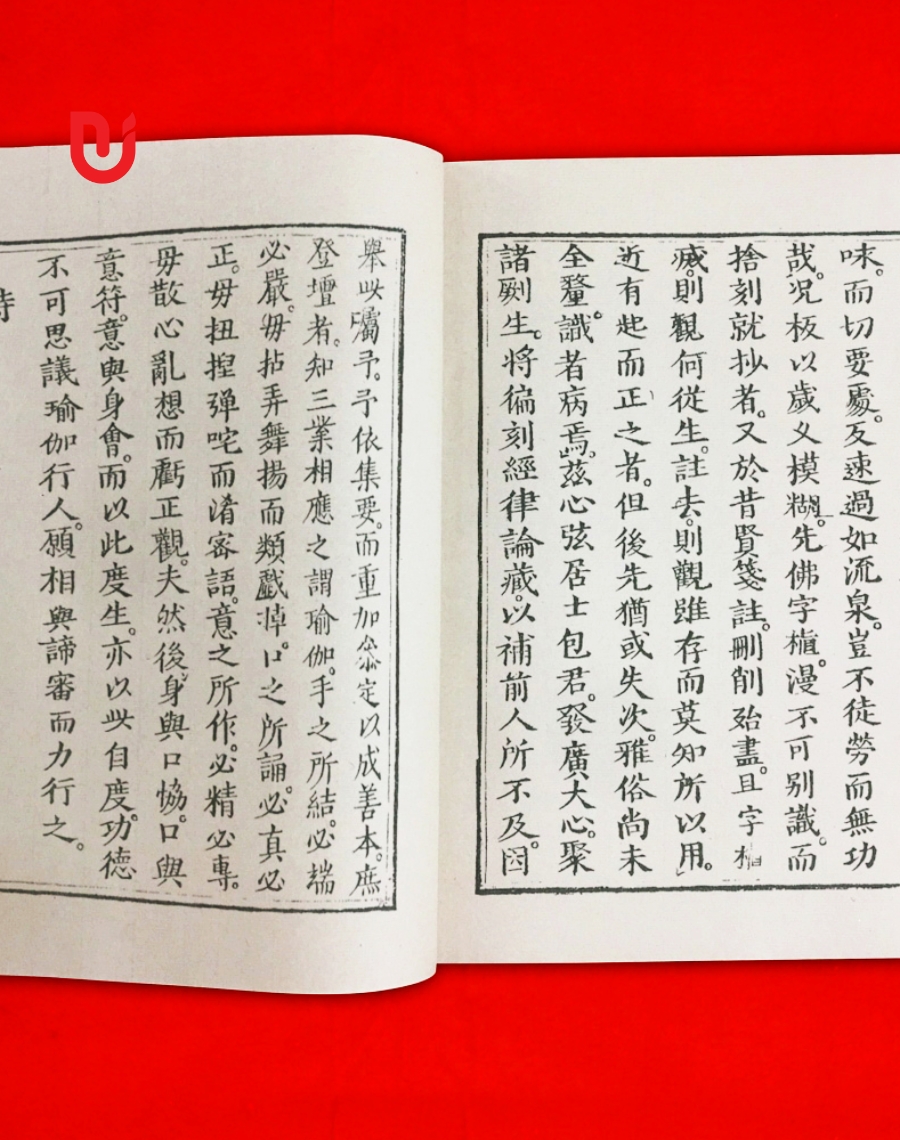 味。而切要處。反速過如流泉。豈不徒勞而無功
哉。况板以歲乂模糊。先佛字樴漫不可别識。而
捨刻就抄者。又於昔賢箋註。刪削殆盡。且字
減。則觀何從生。註去。則觀雖存而莫知所以用。
近有起而正之者。但後先猶或失次。雅俗尚未
全釐。識者病焉。茲心弦居士包君。發廣大心。聚
諸剞生。將徧刻經律論藏。以補前人所不及。因
舉以囑予。予依集要。而重加叅定以成善本。庶
登壇者。知三業相應之謂瑜伽。手之所結。必端
必嚴。毋拈弄舞揚而類戲掉。口之所誦。必真必
正。毋扭捏弹咤而淆密語。意之所作。必精必專。
毋散心亂想而虧正觀。夫然後身與口恊。口與
意符。意與身會。而以此度生。亦以此自度。功德
不可思議瑜伽行人。願相與諦審而力行之。
時